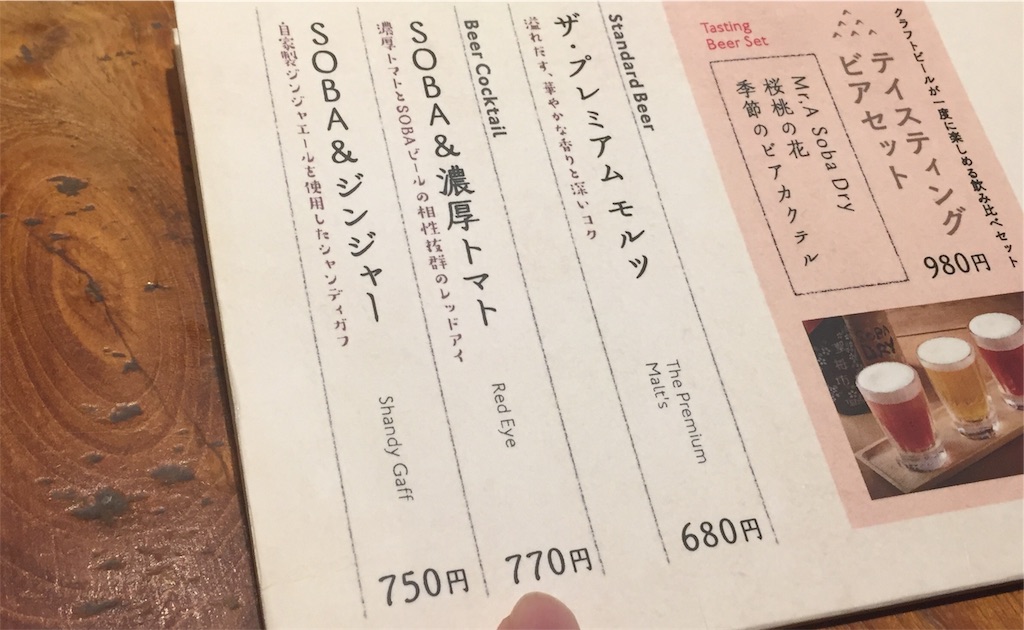 クラフトビールが一度に楽しめる飲み比べセット
ティスティング
ビアセット
980円
Tasting
Beer Set
Mr.A Soba Dry
桜桃の花
季節のビアカクテル
Standard Beer
ザ・プレミアム モルツ
The Premium
Malt's
680円
溢れだす、華やかな香りと深いコク
Beer Cocktail
SOBA&濃厚トマト
Red Eye
770円
濃厚トマトとSOBAビールの相性抜群のレッドアイ
SOBA&ジンジャー
Shandy Gaff
750円
自家製ジンジャエールを使用したシャンディガフ